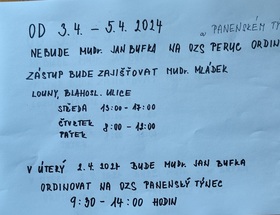 OD 3.4. – 5.4. 2024
w PANENSKÉM TÝ
NEBUDE MUDr. JAN BUFKA NA OZS PERUC ORDIN
ZÁSTUP BUDE ZAJIŠŤOVAT MUDr. MLÁDEK
LOUNY, BLAHOSL. ULICE
STŘEDA 13:00 - 17:00
ČTVRTEK
PÁTEK 8:00 - 12:00
V ÚTERÝ 2.4. 2024 BUDE MUDr. JAN BUFKA
ORDINOVAT NA OZS PANENSKÝ TÝNEC
9:30 - 14:00 HODIN